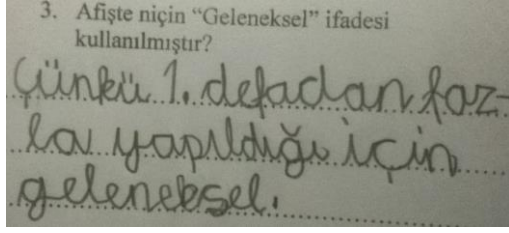 3. Afişte niçin “Geleneksel” ifadesi
kullanılmıştır?
Çünkü 1. defadan faz-
la yapıldığı için
geleneksel.